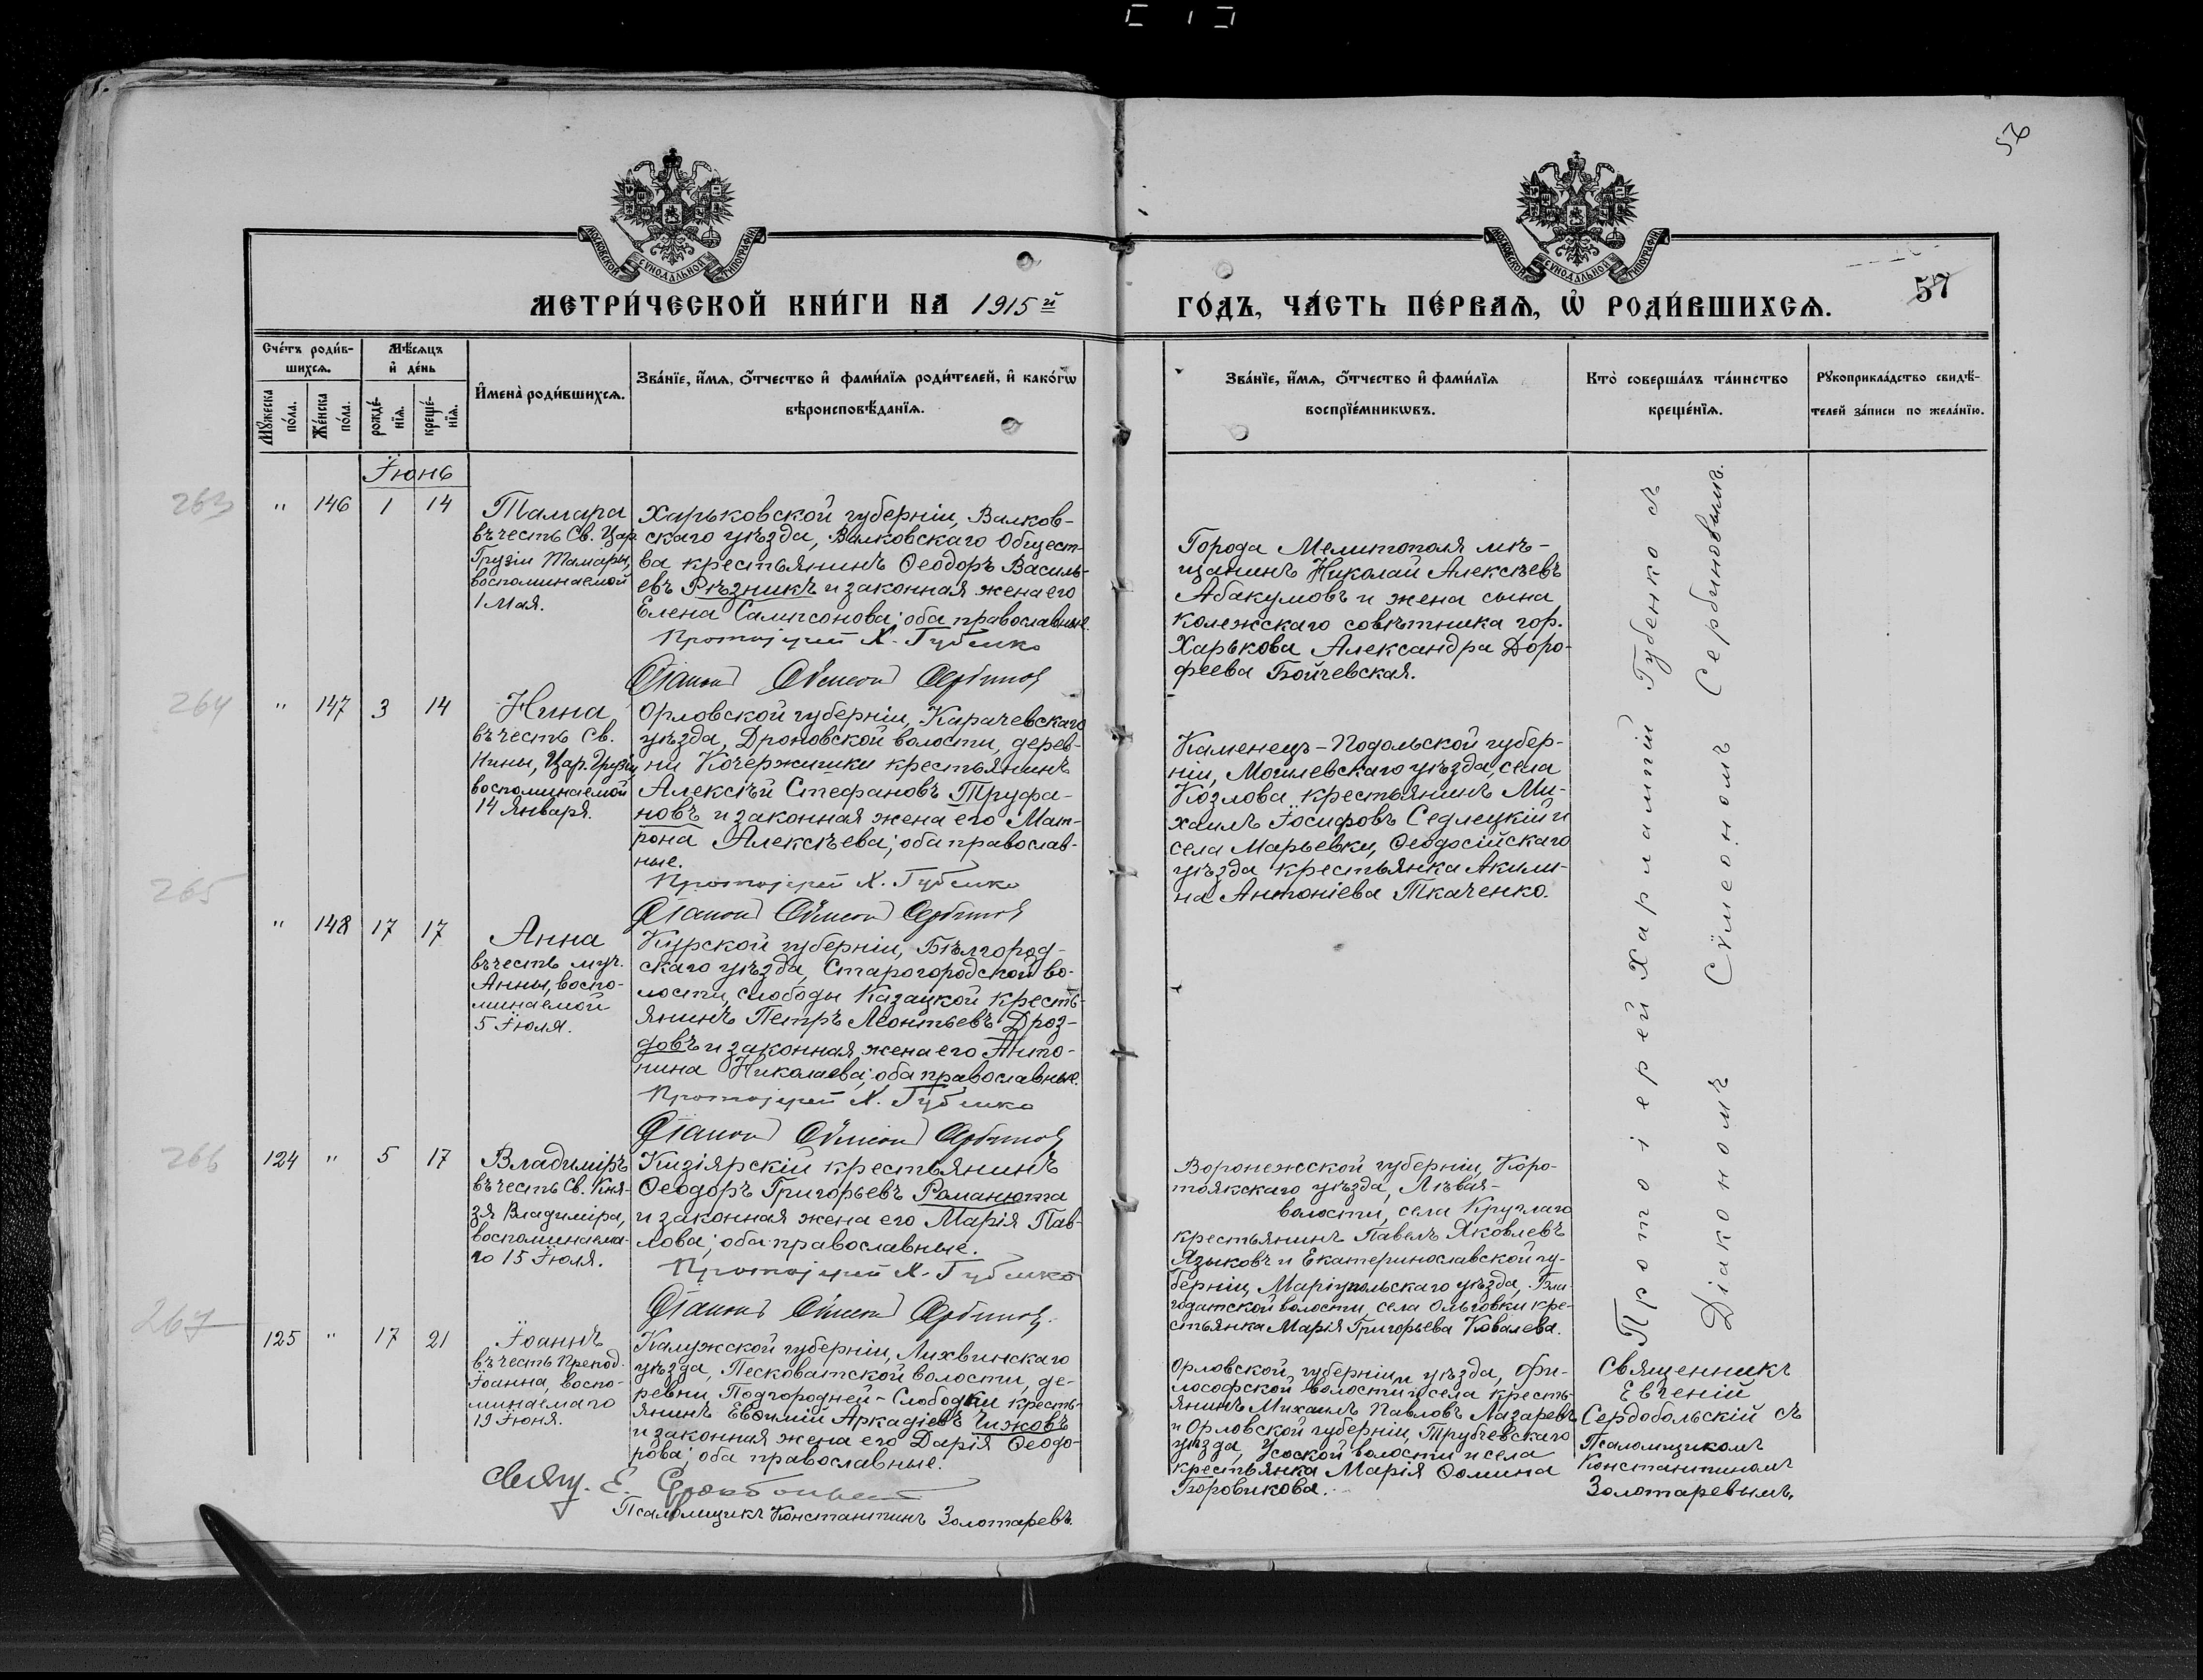 57
57
МОСКОВСКОЙ СѴНОДАЛЬНОЙ ТИПОГРАФІИ
МОСКОВСКОЙ СѴНОДАЛЬНОЙ ТИПОГРАФІИ
МЕТРИ́ЧЕСКОЙ КНИ́ГИ НА 1915й
ГО́ДЪ, ЧА́СТЬ ПЕ́РВАѦ, Ѡ҆ РОДИ́ВШИХСѦ.
Сче́тъ роди́в-
шихсѧ.
Мꙋ́жеска
по́ла.
Же́нска
по́ла.
Мѣ́сѧцъ
и҆ де́нь
рожде́-
нїѧ.
креще́-
нїѧ.
И҆мена̀ роди́вшихсѧ.
Зва́нїе, и҆́мѧ, ѻ҆́тчество и҆ фами́лїѧ роди́телей, и҆ како́гѡ
вѣроисповѣ́данїѧ.
Зва́нїе, и҆́мѧ, ѻ҆́тчество и҆ фами́лїѧ
воспрїе́мникѡвъ.
Кто̀ соверша́лъ та́инство
креще́нїѧ.
Рꙋкоприкла́дство свидѣ́-
телей за́писи по жела́нїю.
Іюнь
263
" 146 1 14
Тамара
въ честь Св. Цар.
Грузіи Тамары,
воспоминаемой
1 Мая.
Харьковской губерніи, Валков-
скаго уѣзда, Валковскаго Общест-
ва крестьянинъ Ѳеодоръ Василь-
евъ Рѣзникъ и законная жена его
Елена Сампсонова; оба православные.
Протоіерей Х. Губенко
Діаконъ Сѵмеонъ Сербиновъ
Города Мелитополя мѣ-
щанинъ Николай Алексѣевъ
Абакумовъ и жена сына
колежскаго совѣтника гор.
Харькова Александра Доро-
феева Бойчевская.
264
" 147 3 14
Нина
въ честь Св.
Нины, Цар. Грузіи,
воспоминаемой
14 Января.
Орловской губерніи, Карачевскаго
уѣзда, Дроновской волости, дерев-
ни Кочержишки крестьянинъ
Алексѣй Стефановъ Труфа-
новъ и законная жена его Мат-
рона Алексѣева; оба православ-
ные.
Протоіерей Х. Губенко
Діаконъ Сѵмеонъ Сербиновъ
Каменецъ-Подольской губер-
ніи, Могилевскаго уѣзда, села
Козлова крестьянинъ Ми-
хаилъ Іосифовъ Седлецкій и
села Марьевки, Ѳеодосійскаго
уѣзда крестьянка Акили-
на Антоніева Ткаченко.
265
" 148 17 17
Анна
въ честь муч.
Анны, воспо-
минаемой
5 Іюля.
Курской губерніи, Бѣлгород-
скаго уѣзда, Старогородской во-
лости, слободы Казацкой кресть-
янинъ Петръ Леонтьевъ Дроз-
довъ и законная жена его Анто-
нина Николаева; оба православные.
Протоіерей Х. Губенко
Діаконъ Сѵмеонъ Сербиновъ
266
124 " 5 17
Владиміръ
въ честь Св. Кня-
зя Владиміра,
воспоминаема-
го 15 Іюля.
Кизіярскій крестьянинъ
Ѳеодоръ Григорьевъ Романюта
и законная жена его Марія Пав-
лова; оба православные.
Протоіерей Х. Губенко
Діаконъ Сѵмеонъ Сербиновъ.
Воронежской губерніи, Коро-
тоякскаго уѣзда, Лѣвая-
волости, села Круглаго
крестьянинъ Павелъ Яковлевъ
Языковъ и Екатеринославской гу-
берніи, Маріупольскаго уѣзда, Бла-
годатской волости, села Ольговки кре-
стьянка Марія Григорьева Ковалева.
Протоіерей Харлампій Губенко съ
Діакономъ Сѵмеономъ Сербиновымъ.
267
125 " 17 21
Іоаннъ
въ честь Препод.
Іоанна, воспо-
минаемаго
19 Іюня.
Калужской губерніи, Лихвинскаго
уѣзда, Песковатской волости, де-
ревни Подгородней-Слободки кресть-
янинъ Евѳимій Аркадіевъ Чижовъ
и законная жена его Дарія Ѳеодо-
рова; оба православные.
Свящ. Е.
Псаломщикъ Константинъ Золотаревъ.
Орловской губерніи и уѣзда, Фи-
лософской волости и села кресть-
янинъ Михаилъ Павловъ Лазаревъ
и Орловской губерніи, Трубчевскаго
уѣзда, Усокой волости и села
крестьянка Марія Ѳомина
Боровикова.
Священникъ
Евгеній
Сердобольскій съ
Псаломщикомъ
Константиномъ
Золотаревымъ.